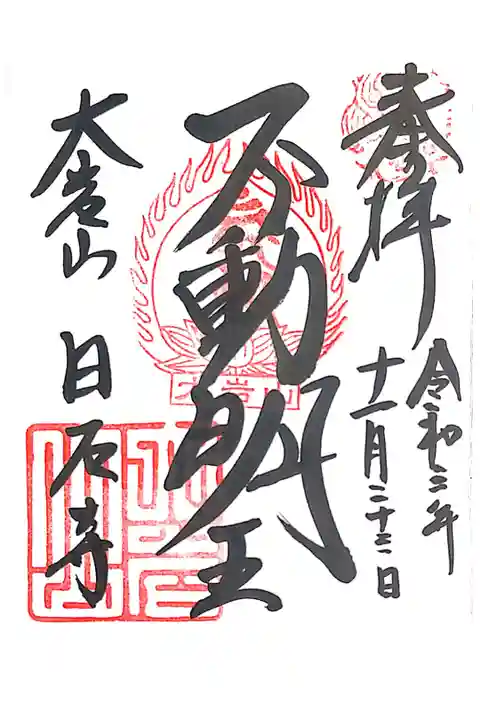 奉拝
令和二年
十一月二十三日
不動明王
大岩山 日石寺
大岩山